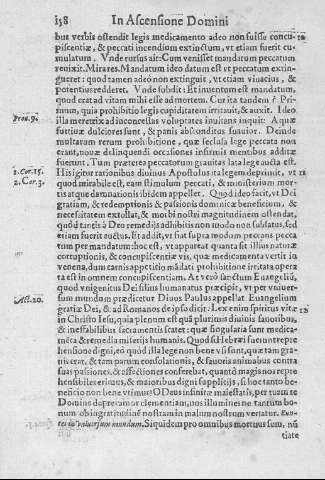 158 In Ascensione Domini
bus verbis ostendit legis medicamento adeo non fuisse concu-
piscentiæ, & peccati incendium extinctum, vt etiam fuerit cu-
mulatum. Vnde rursus ait: Cum venisset mandatum peccatum
reuixit. Mirares. Mandatum ideo datum est vt peccatum extin-
gueret: quod tamen adeo non extinguit, vt etiam viuacius, &
potentius redderet. Vnde subdit: Et inuentum est mandatum,
quod erat ad vitam mihi esse ad mortem. Cur ita tandem? Pri-
mum, quia prohibitio legis cupiditatem irritauit, & auxit. Ideo
Prou. 9. illa meretrix ad inconcessas voluptates inuitans inquit: Aquæ
furtiuæ dulciores sunt, & panis absconditus suauior. Deinde
multarum rerum prohibitione, quæ seclusa lege peccata non
erant, nouæ delinquendi occasiones infirmis mentibus additæ
fuerunt. Tum præterea peccatorum grauitas lata lege aucta est.
1. Cor. 15. His igitur rationibus diuinus Apostolus ita legem deprimit, vt
2. Cor. 3. quod mirabile est, eam stimulum peccati, & ministerium mor-
tis atque damnationis ibidem appellet. Quod ideo facit, vt Dei
gratiam, & redemptionis & passionis dominicæ beneficium, &
necessitatem extollat, & morbi nostri magnitudinem ostendat,
quod tantis à Deo remedijs adhibitis non modo non sudatus, sed
etiam fuerit auctus. Et adijt, vt fiat supra modum peccans pecca
tum per mandatum: hoc est, vt appareat quanta sit illius naturæ
corruptionis, & concupiscentiæ vis, quæ medicamenta vertit in
venena, dum carnis appetitio mādati prohibitione irritata opera
ta est in omnem concupiscentiam. At verò sanctum Euangeliū,
quod vnigenitus Dei filius humanatus præcipit, vt per vniuer-
Act. 20. sum mundum prædicetur Diuus Paulus appellat Euangelium
gratiæ Dei, & ad Romanos de ipso dicit: Lex enim spiritus vitæ
in Christo Iesu, quia plenum est quā plurimis diuinis fauoribus,
& ineffabilibus sacramentis scatet: quæ singulatia sunt medica-
mēta & remedia miserijs humanis. Quod si Hebræi fuerunt repre
hensione digni, eo quòd illa lege non bene vsi sunt, quæ tam gra-
uis erat, & tam parum consolationis, & fauoris animabus contra
suas passiones, & affectiones conferebat, quantò magis nos repre
hensibiles erimus, & maioribus digni supplicijs, si hoc tanto be-
neficio non bene vtimur? O Deus infinitæ maiestatis, per tuam te
Domine deprecamor clementiam, nos illumines ne tantum bo-
num ob ingratitudinē nostram in malum nostrum vertatur. Eun-
tes in vniuersum mundum. Siquidem pro omnibus mortuus sum, nū
tiate